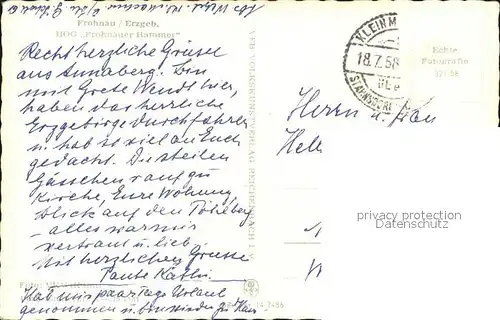 Frohnau / Erzgeb.
HOG „Frohnauer Hammer"
Recht herzliche Grüsse
aus Annaberg. Bin
mit Grete Wendt hier,
haben das herrliche
Erzgebirge durchfahren
u. hab so viel an Euch
gedacht. Die steilen
Gässchen rauf zu
Kirche, Eure Wohnung,
Blick auf den Pöhlberg
– alles war mir
vertraut u. lieb.
Mit herzlichen Grüssen
Tante Käthe
Hab mir paar Tage Urlaub
genommen u.
VEB VOLKSKUNSTVERLAG REICHENBACH I. V.
KLEINM
18.7.58
STAHNSDORF
Echte
Fotografie
Herrn u. Frau
Hell
privacy protection
Datenschutz